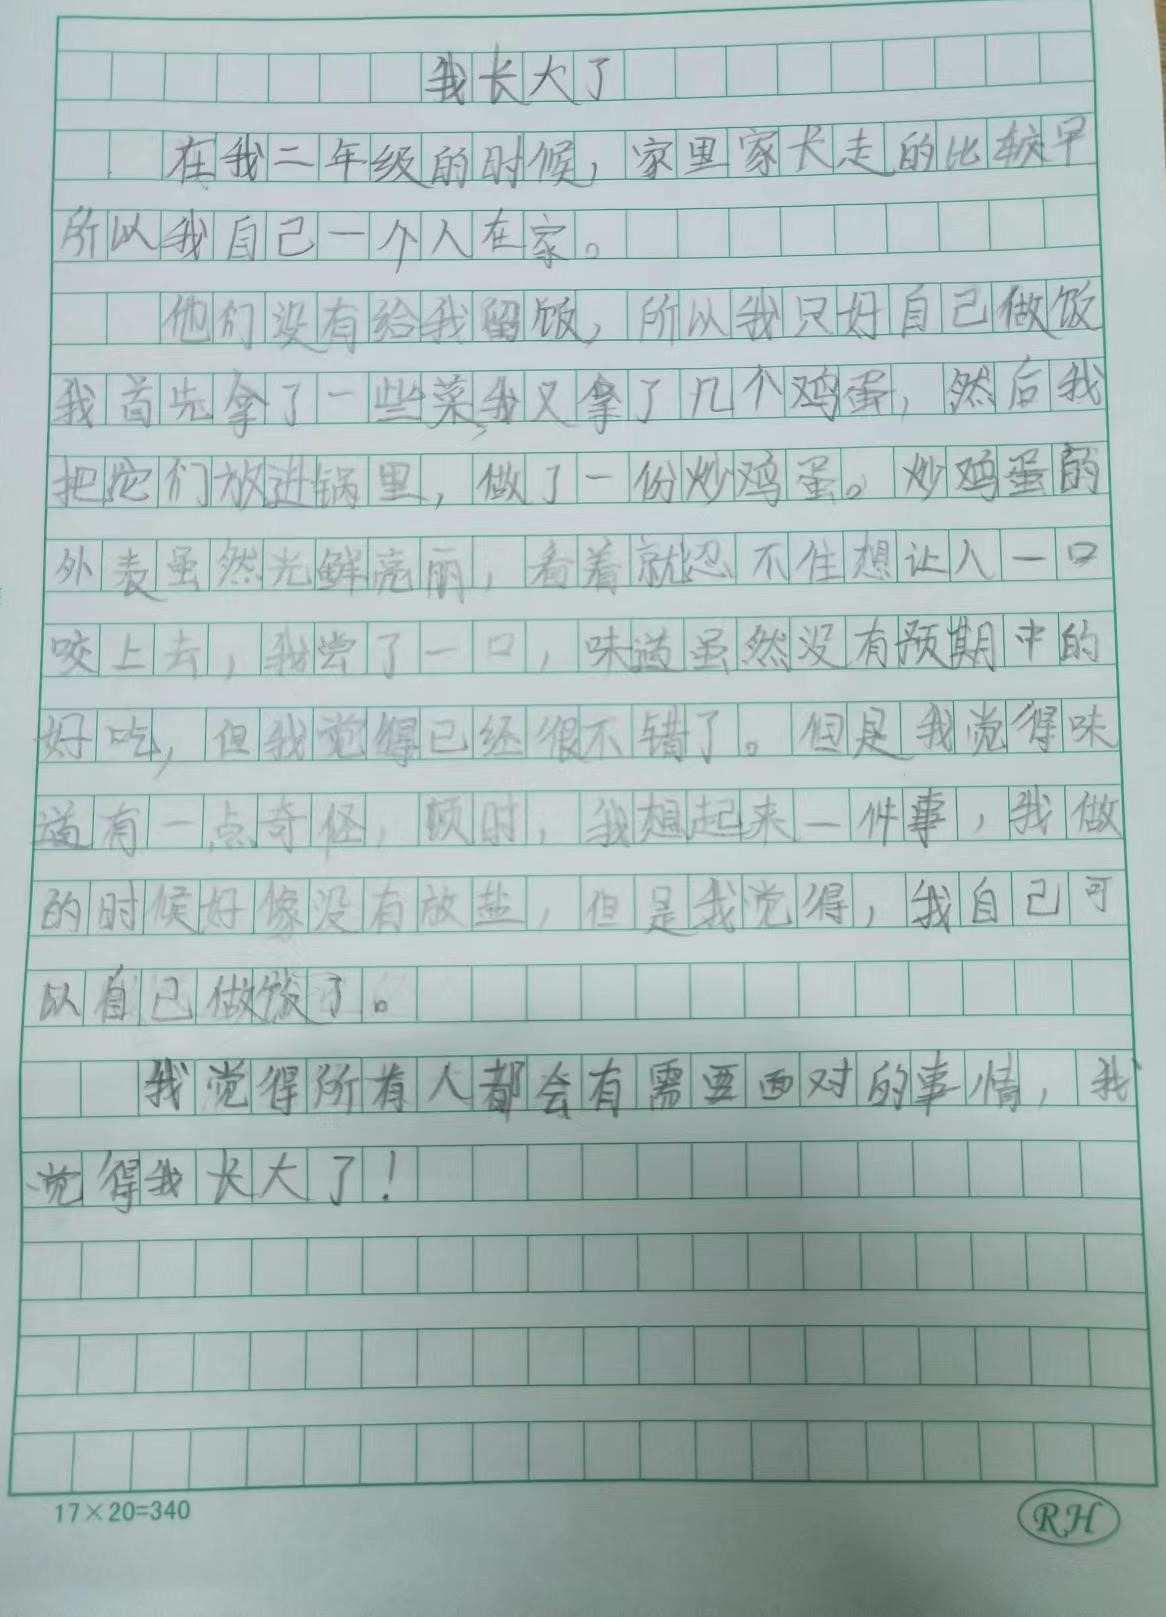 我长大了
在我二年级的时候，家里家长走的比较早
所以我自己一个人在家。
他们没有给我留饭，所以我只好自己做饭
我首先拿了一些菜，我又拿了几个鸡蛋，然后我
把它们放进锅里，做了一份炒鸡蛋。炒鸡蛋的
外表虽然光鲜亮丽，看着就忍不住想让人一口
咬上去，我尝了一口，味道虽然没有预期中的
好吃，但我觉得已经很不错了。但是我觉得味
道有一点奇怪，顿时，我想起来一件事，我做
的时候好像没有放盐，但是我觉得，我自己可
以自己做饭了。
我觉得所有人都会有需要面对的事情，我
觉得我长大了！
17×20=340
RH